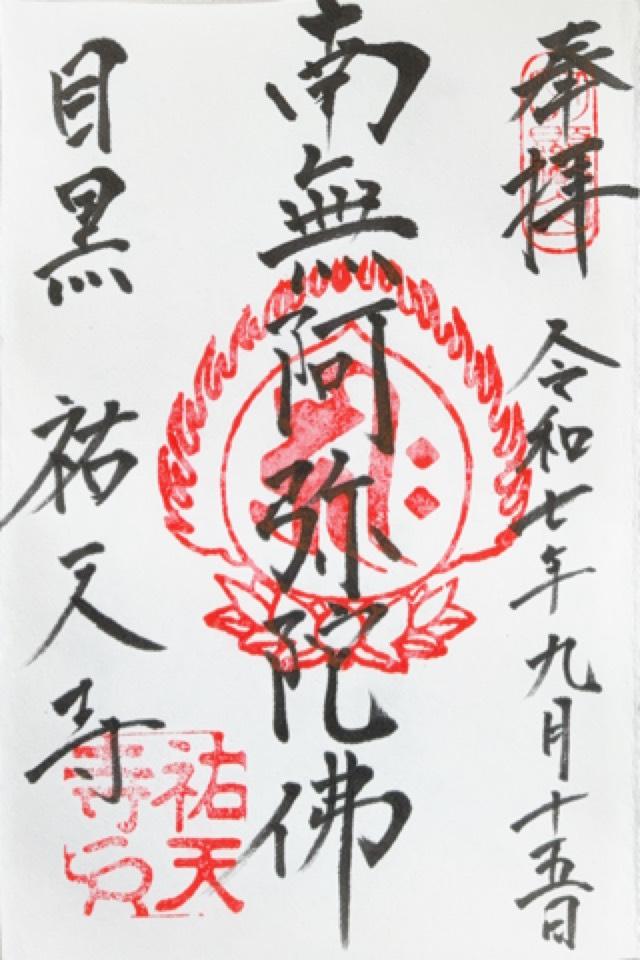 奉拝
令和七年九月十五日
南無阿弥陀佛
目黒 祐天寺
祐天
寺印